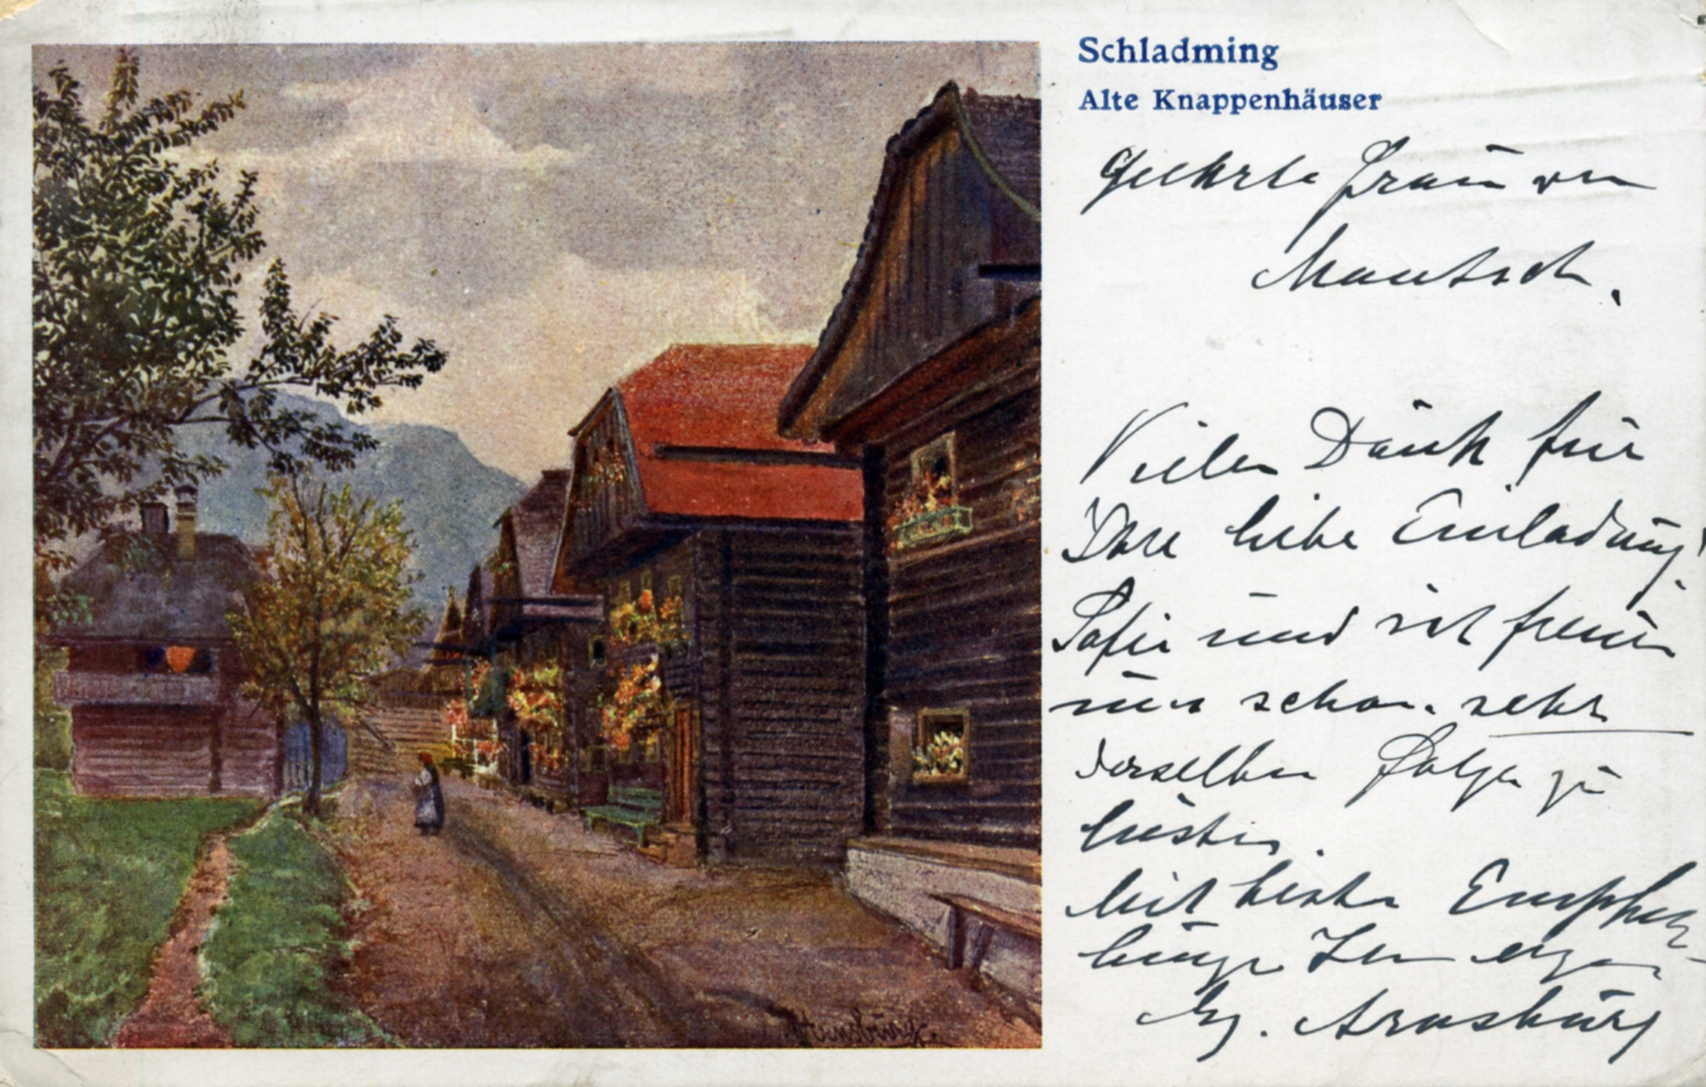 Schladming
Alte Knappenhäuser
Geehrte Frau von
Mautsch.
Vielen Dank für
Ihre liebe Einladung!
Sofie und ich freuen
uns schon sehr
derselben Folge zu
leisten.
Mit besten Empfeh-
lungen Ihr
M. Arnsburg